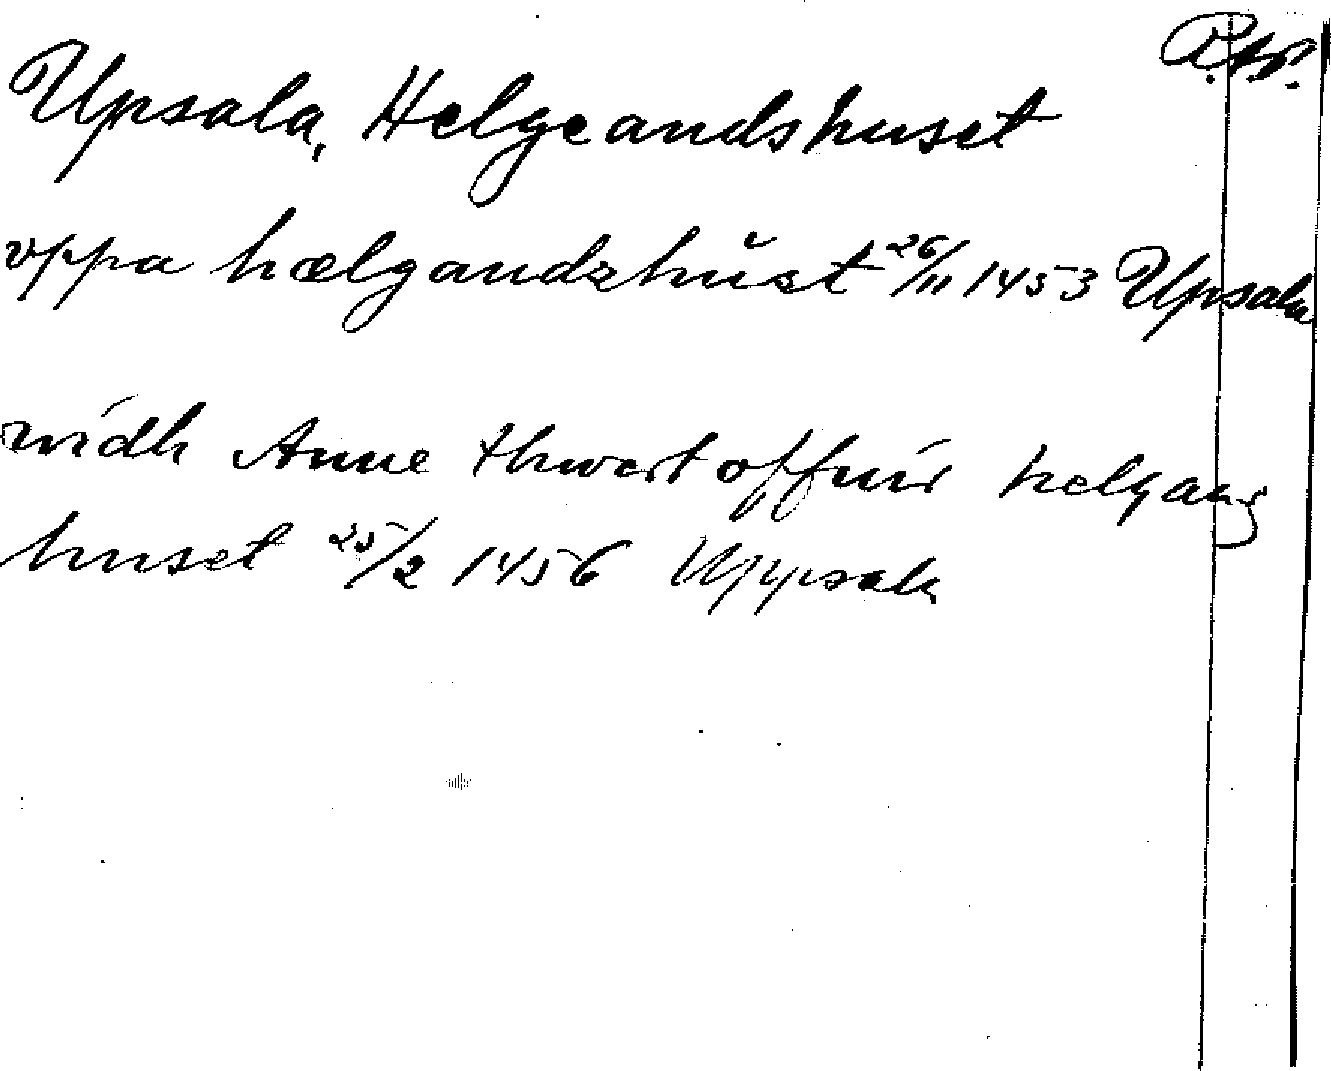 Upsala, Helgeandshuset
vppa hælgandzhust 26/11 1453 Upsala
widh Anne thwert offuir helgang
huset 25/2 1456 Uppsala